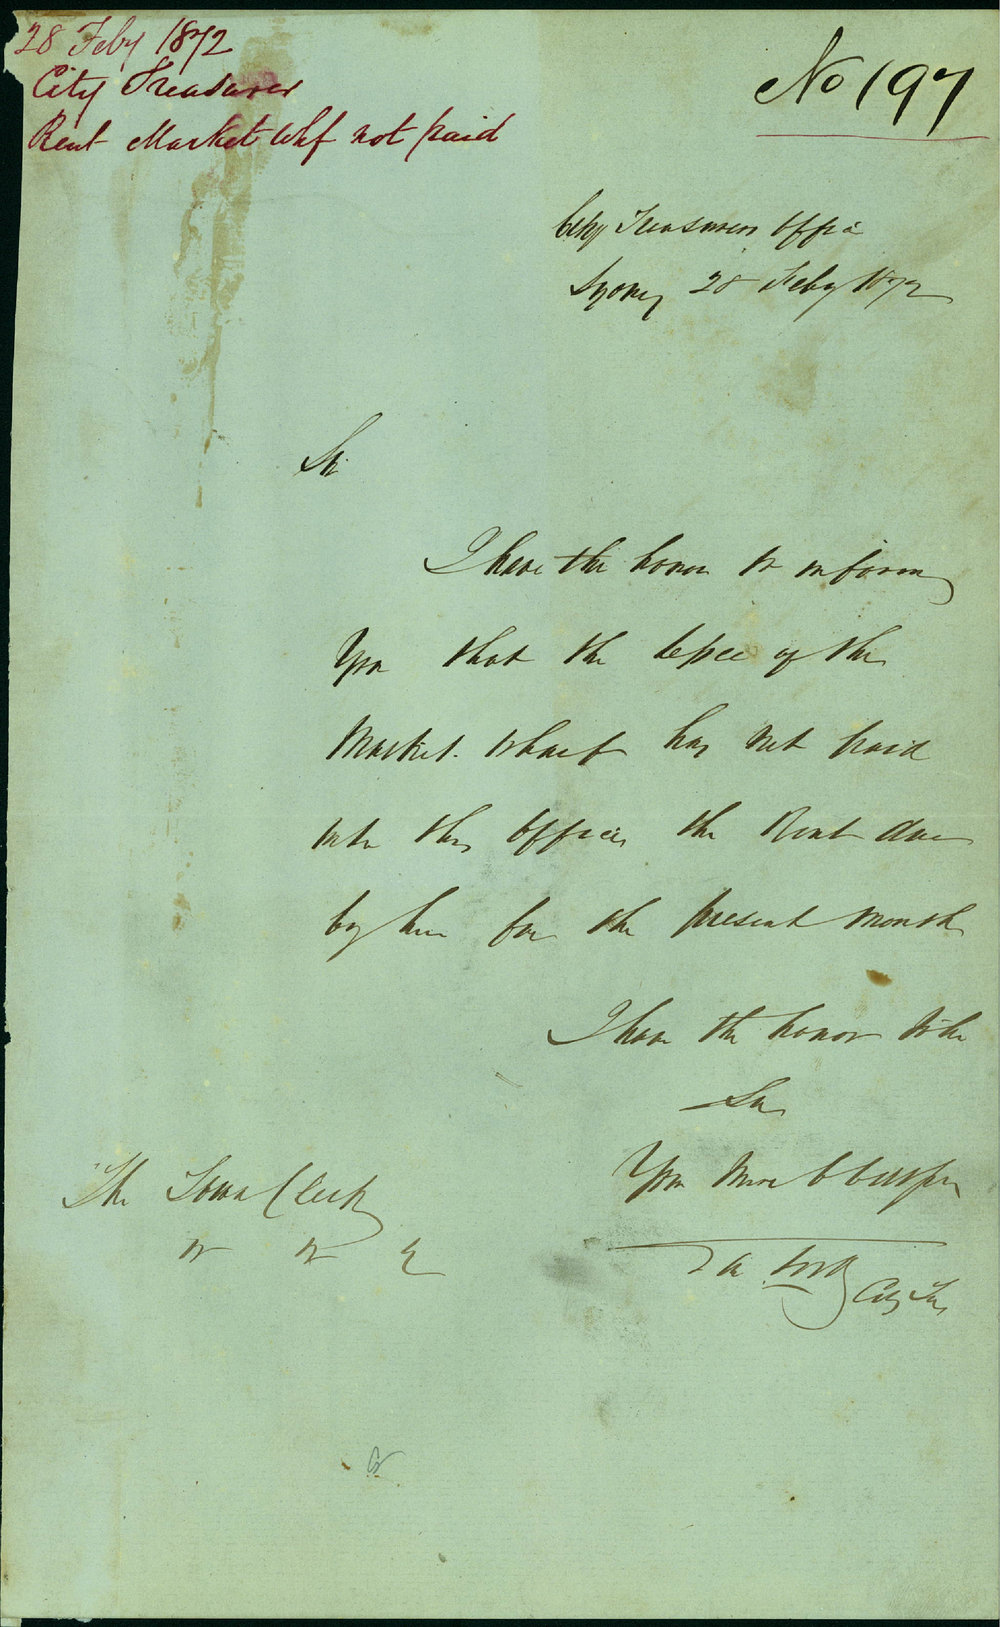 28 Feby 1872
City Treasurer
Rent Market Whf not paid
No 197
City Treasurers Office
Sydney 28 Feby 1872
Sir
I have the honor to inform
You that the lessee of the
Market Wharf has not paid
into this Office the Rent due
by him for the present month
I have the honor to be
Sir
Your Most Obt
City Tr
The Town Clerk